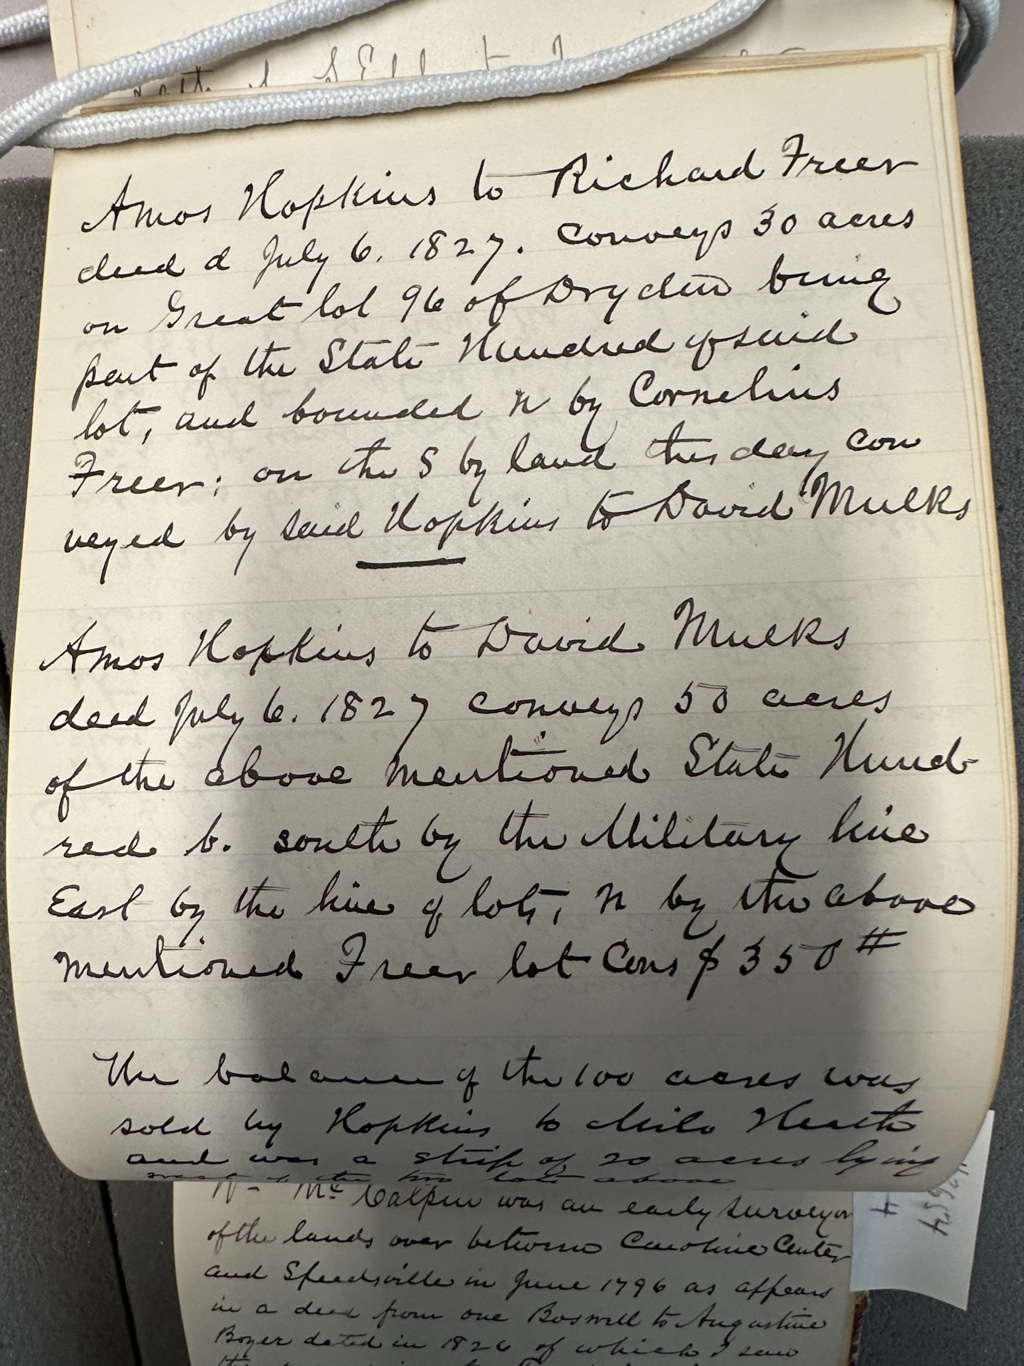 Amos Hopkins to Richard Freer
deed d July 6, 1827. conveys 30 acres
on Great lot 96 of Dryden being
part of the State Hundred of said
lot, and bounded N by Cornelius
Freer; on the S by land this day con
veyed by said Hopkins to David Mulks
Amos Hopkins to David Mulks
deed July 6. 1827 conveys 50 acres
of the above mentioned State Hund-
red b. south by the Military line
East by the line of lots, N by the above
mentioned Freer lot Cons $350
The balance of the 100 acres was
sold by Hopkins to Milo Heath
and was a strip of 20 acres lying
west of the two lots above
Wm Mc Calpin was an early surveyor
of the lands over between Caroline Center
and Speedsville in June 1796 as appears
in a deed from one Boswell to Augustine
Boyer dated in 1826 of which I saw